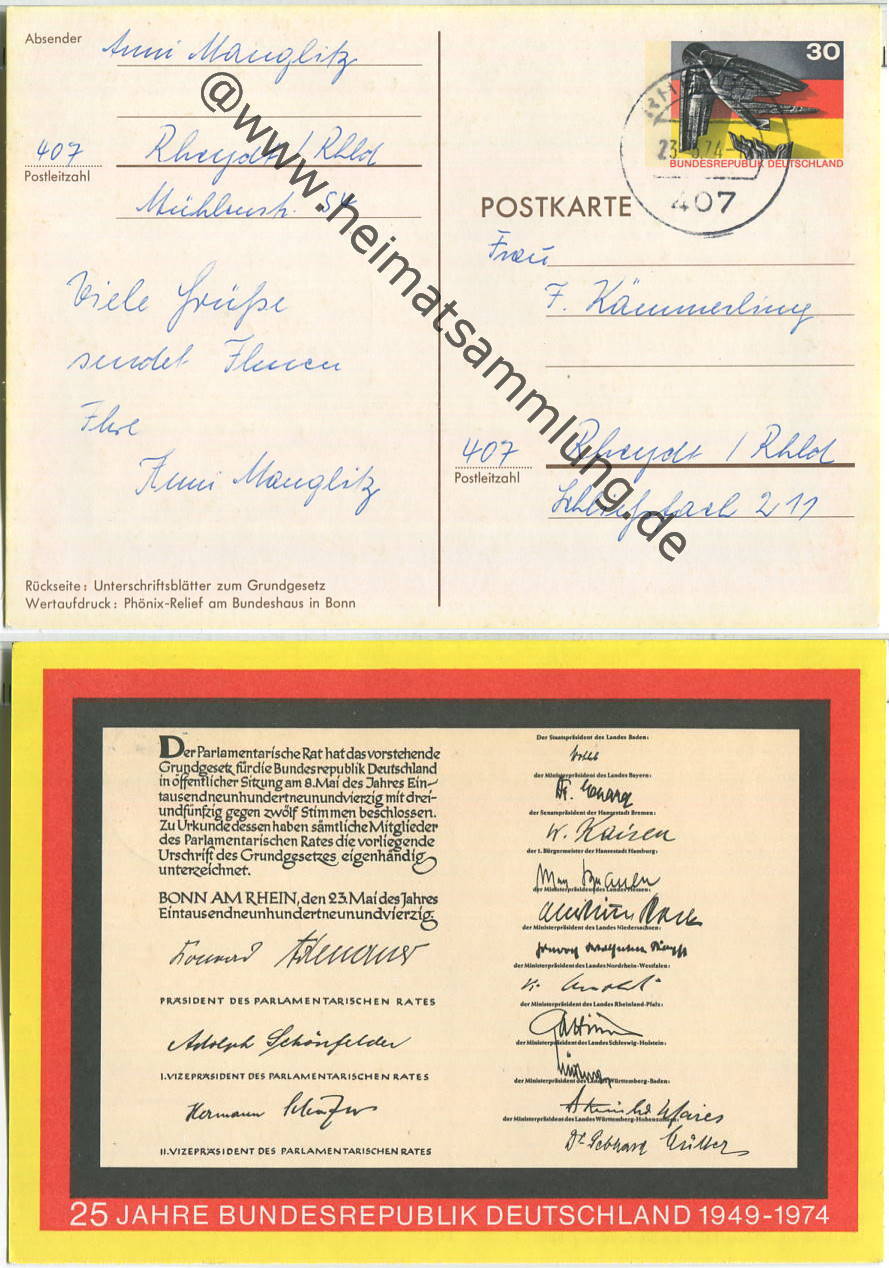 Absender
Anni Manglitz
407
Rheydt / Rhld
Postleitzahl
Mühlenstr. 54
Viele Grüße
sendet Ihnen
Ihre
Anni Manglitz
Rückseite: Unterschriftsblätter zum Grundgesetz
Wertaufdruck: Phönix-Relief am Bundeshaus in Bonn
30
BUNDESREPUBLIK DEUTSCHLAND
407
POSTKARTE
Frau
F. Kämmerling
407
Rheydt / Rhld
Postleitzahl
211
@www.heimatsammlung.de
Der Parlamentarische Rat hat das vorstehende
Grundgesetz für die Bundesrepublik Deutschland
in öffentlicher Sitzung am 8. Mai des Jahres Ein-
tausendneunhundertneunundvierzig mit drei-
undfünfzig gegen zwölf Stimmen beschlossen.
Zu Urkunde dessen haben sämtliche Mitglieder
des Parlamentarischen Rates die vorliegende
Urschrift des Grundgesetzes eigenhändig
unterzeichnet.
BONN AM RHEIN, den 23. Mai des Jahres
Eintausendneunhundertneunundvierzig:
Konrad Adenauer
PRÄSIDENT DES PARLAMENTARISCHEN RATES
Adolph Schönfelder
I. VIZEPRÄSIDENT DES PARLAMENTARISCHEN RATES
Hermann Schäfer
II. VIZEPRÄSIDENT DES PARLAMENTARISCHEN RATES
Der Staatspräsident des Landes Baden:
der Ministerpräsident des Landes Bayern:
der Senatspräsident der Hansestadt Bremen:
W. Kaisen
der 1. Bürgermeister der Hansestadt Hamburg:
Max Brauer
der Ministerpräsident des Landes Hessen:
der Ministerpräsident des Landes Niedersachsen:
der Ministerpräsident des Landes Nordrhein-Westfalen:
K. Arnold
der Ministerpräsident des Landes Rheinland-Pfalz:
der Ministerpräsident des Landes Schleswig-Holstein:
der Ministerpräsident des Landes Württemberg-Baden:
der Ministerpräsident des Landes Württemberg-Hohenzollern:
Dr. Gebhard Müller
25 JAHRE BUNDESREPUBLIK DEUTSCHLAND 1949-1974